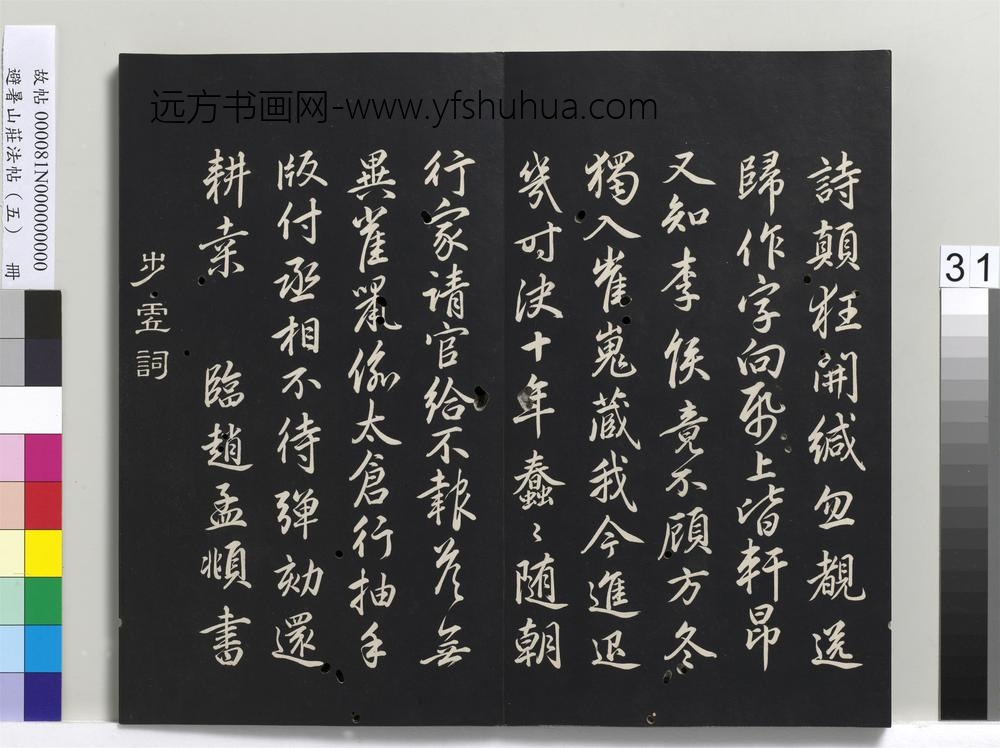 远方书画网-www.yfshuhua.com
詩顛狂開緘忽覩送
歸作字向紙上皆軒昂
又知李侯竟不顧方冬
獨入崔嵬藏我今進退
幾时決十年蠢〻随朝
行家请官给不報荅無
異雀鼠偷太倉行抽手
版付丞相不待弹劾還
耕桒 臨趙孟頫書
步虛詞
故帖 000081N000000000
避暑山莊法帖（五） 冊
31